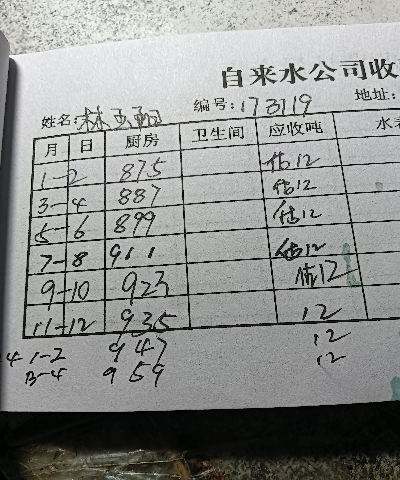 自来水公司收
姓名:林玉 编号:173719 地址:
月 日 厨房 卫生间 应收吨 水
1-2 875 估12
3-4 887 估12
5-6 899 估12
7-8 911 估12
9-10 923 估12
11-12 935 12
4 1-2 947 12
3-4 959 12